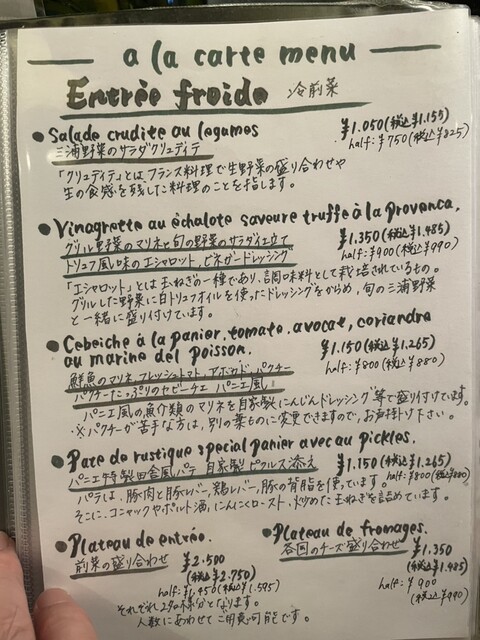 a la carte menu
Entrée froide 冷前菜
Salade crudite au legames ¥1.050(税込¥1.155)
三浦野菜のサラダクリュディテ half:¥750(税込¥825)
「クリュディテ」とは、フランス料理で生野菜の盛り合わせや
生の食感を残した料理のことを指します。
Vinagrette au échalote saveure truffe à la provenca.
グリル野菜のマリネと旬の野菜のサラダ仕立て ¥1.350(税込¥1.485)
トリュフ風味のエシャロット、ビネガードレッシング half:¥900(税込¥990)
「エシャロット」とは玉ねぎの一種であり、調味料として栽培されているもの。
グリルした野菜に白トリュフオイルを使ったドレッシングをからめ、旬の三浦野菜
と一緒に盛り付けています。
Cebeiche à la panier, tomato, avocat, coriandre
au marine del poisson. ¥1.150(税込¥1.265)
鮮魚のマリネ、フレッシュトマト、アボカド、パクチー half:¥800(税込¥880)
パクチーたっぷりのセビーチェ パニエ風
パニエ風の魚介類のマリネを自家製にんじんドレッシング等で盛り付けています。
※パクチーが苦手な方は、別の葉ものに変更できますので、お声掛け下さい。
Pate de rustique special panier avec au pickles.
パニエ特製田舎風パテ 自家製ピクルス添え ¥1.150(税込¥1.265)
half:¥800(税込¥880)
パテは、豚肉と豚レバー、鶏レバー、豚の背脂を使っています。
そこに、コニャックやポルト酒、にんにくロースト、炒めた玉ねぎを詰めています。
Plateau de entrée.
前菜の盛り合わせ ¥2.500
(税込¥2.750)
half:¥1.450(税込¥1.595)
それぞれ2名様分となります。
人数にあわせてご用意可能です。
Plateau de fromages.
各国のチーズ盛り合わせ ¥1.350
(税込¥1.485)
half:¥900
(税込¥990)